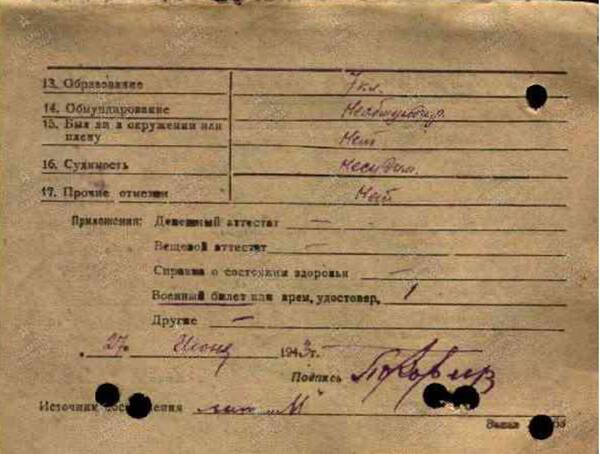 13. Образование 7 кл.
14. Обмундирование
15. Был ли в окружении или
плену Нет
16. Судимость несудим.
17. Прочие отметки Нет
Приложения: Денежный аттестат —
Вещевой аттестат —
Справка о состоянии здоровья —
Военный билет или врем, удостовер, 1
Другие —
„ 27 Июня 1943 г.
Подпись
Источник
Заказ